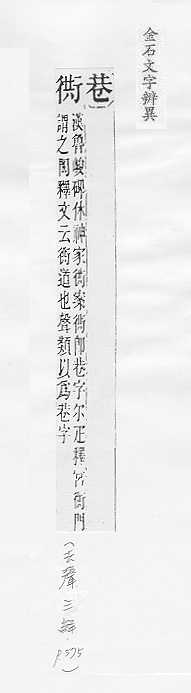 金石文字辨異
巷
衖
漢魯峻碑休神家衖案衖即巷字尔疋釋宮衖門
謂之閎釋文云衖道也聲類以爲巷字
(去聲 三絳 p.575)